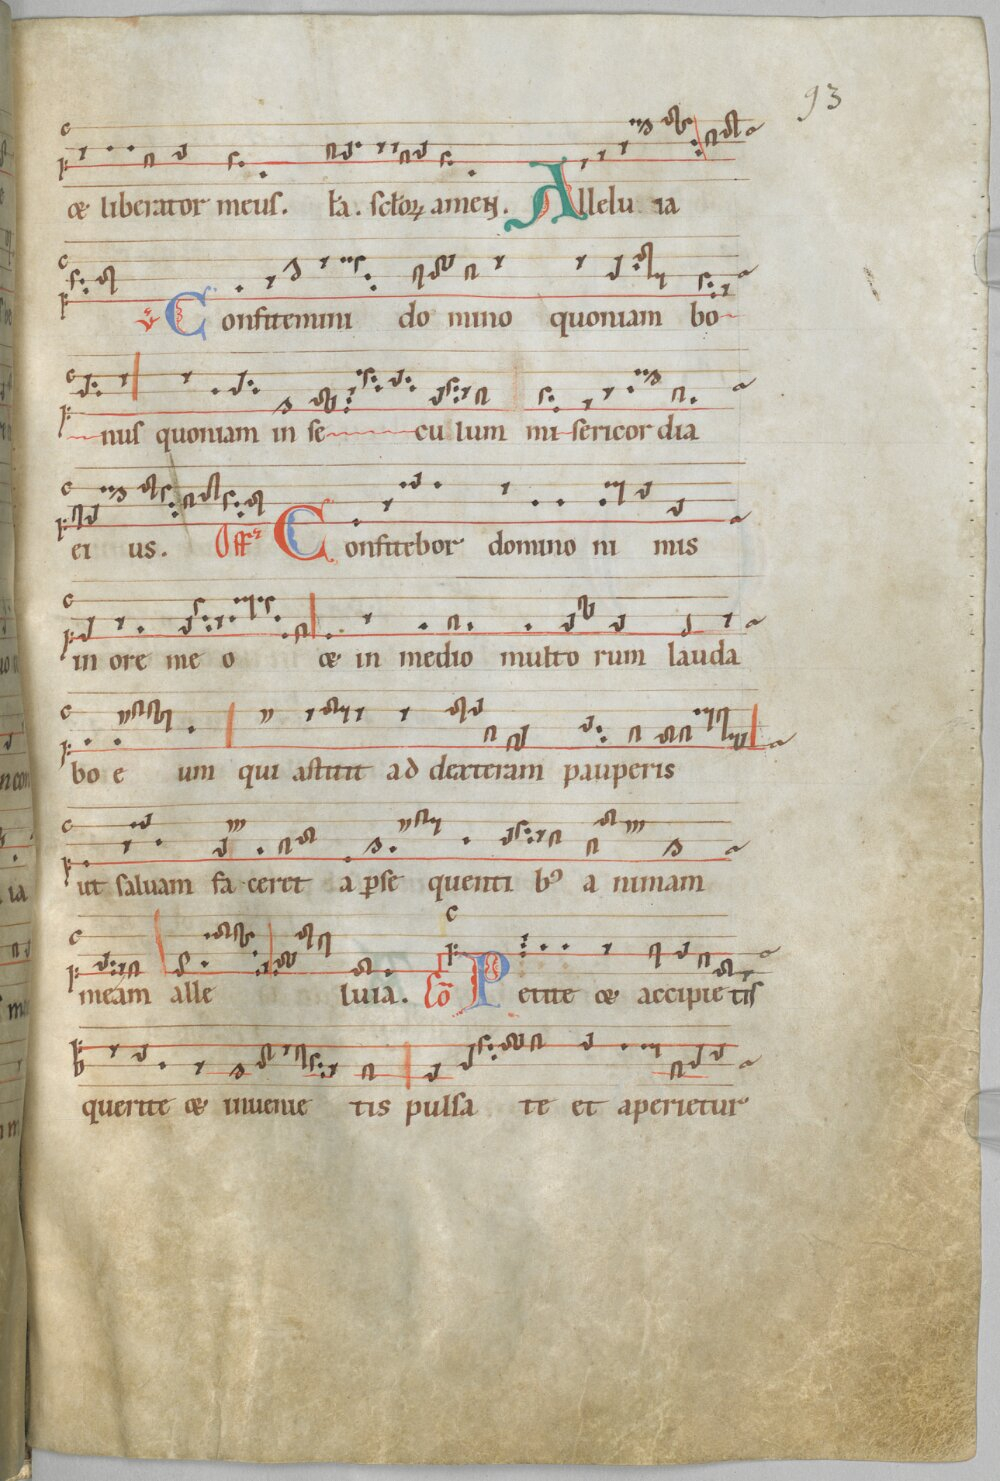 93
& liberator meus. k̄a. sc̄toꝝ amen. Allelu ia
℣ Confitemini do mino quoniam bo
nus quoniam in se cu lum mi sericor dia
ei us. Off Confitebor domino ni mis
in ore me o & in medio multo rum lauda
bo e um qui astitit ad dexteram pauperis
ut saluam fa ceret a ꝑse quenti bꝰ a nimam
meam alle luia. Cō Petite & accipie tis
querite & inuenie tis pulsa te et aperietur